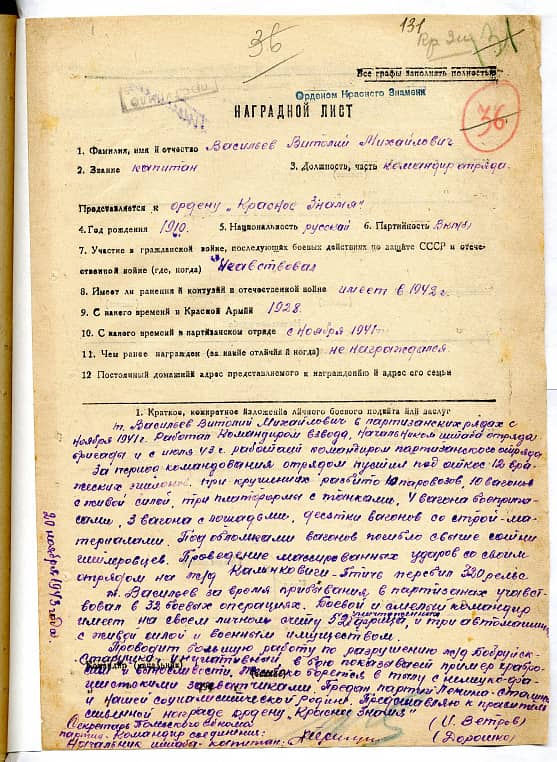 131
36
Все графы заполнять полностью
Орденом Красного Знамени
НАГРАДНОЙ ЛИСТ
36
1. Фамилия, имя и отчество Васильев Виталий Михайлович
2. Звание капитан 3. Должность, часть командир отряда.
Представляется к ордену „Красное Знамя"
4. Год рождения 1910. 5. Национальность русский 6. Партийность ВКП(б)
7. Участие в гражданской войне, последующих боевых действиях по защите СССР и отече-
ственной войне (где, когда)
8. Имеет ли ранения и контузии в отечественной войне имеет в 1942 г.
9. С какого времени в Красной Армии 1928.
10. С какого времени в партизанском отряде с ноября 1941
11. Чем ранее награжден (за какие отличия и когда) не награждался
12 Постоянный домашний адрес представляемого к награждению и адрес его семьи
1. Краткое, конкретное изложение личного боевого подвига или заслуг
т. Васильев Виталий Михайлович в партизанских рядах с
ноября 1941 г. Работал командиром взвода, начальником штаба отряда
бригады и с июля 43 г. работает командиром партизанского отряда.
За период командования отрядом пустил под откос 12 вра-
жеских эшелонов. При крушениях разбито 10 паровозов, 10 вагонов
с живой силой, три платформы с танками, 4 вагона боеприпа-
сами, 3 вагона с лошадьми, десятки вагонов со строй-ма-
териалами. Под обломками вагонов погибло свыше сотни
гитлеровцев. Проведение массированных ударов со своим
отрядом на ж/д Калинковичи-Птичь перебил 320 рельс
т. Васильев за время пребывания в партизанах участ-
вовал в 32 боевых операциях. Боевой и смелый командир
имеет на своем личном счету 52 фрица, и три автомашины
с живой силой и военным имуществом.
Проводит большую работу по разрушению ж/д Бобруйск-
Старушки, инициативный, в бою показывает пример храбро-
сти и стойкости. борется в тылу с немецко-фа-
шистскими захватчиками. Предан партии Ленина-Сталина
и нашей социалистической Родине. Представляю к правитель-
ственной награде ордену „Красное Знамя"
Командир (начальник)
20 ноября 1943 года.
Секретарь Полесского
партии - Командир соединения: (И. Ветров)
Начальник штаба - капитан: (Дорошко)